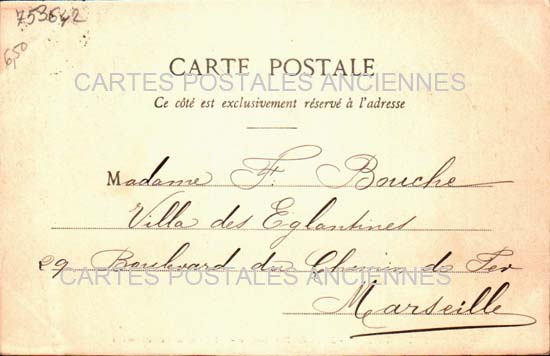 753642
6,50
CARTE POSTALE
CARTES POSTALES ANCIENNES
Ce côté est exclusivement réservé à l'adresse
Madame F. Bouche
Villa des Eglantines
29 Boulevard du Chemin de Fer
CARTES POSTALES ANCIENNES
Marseille